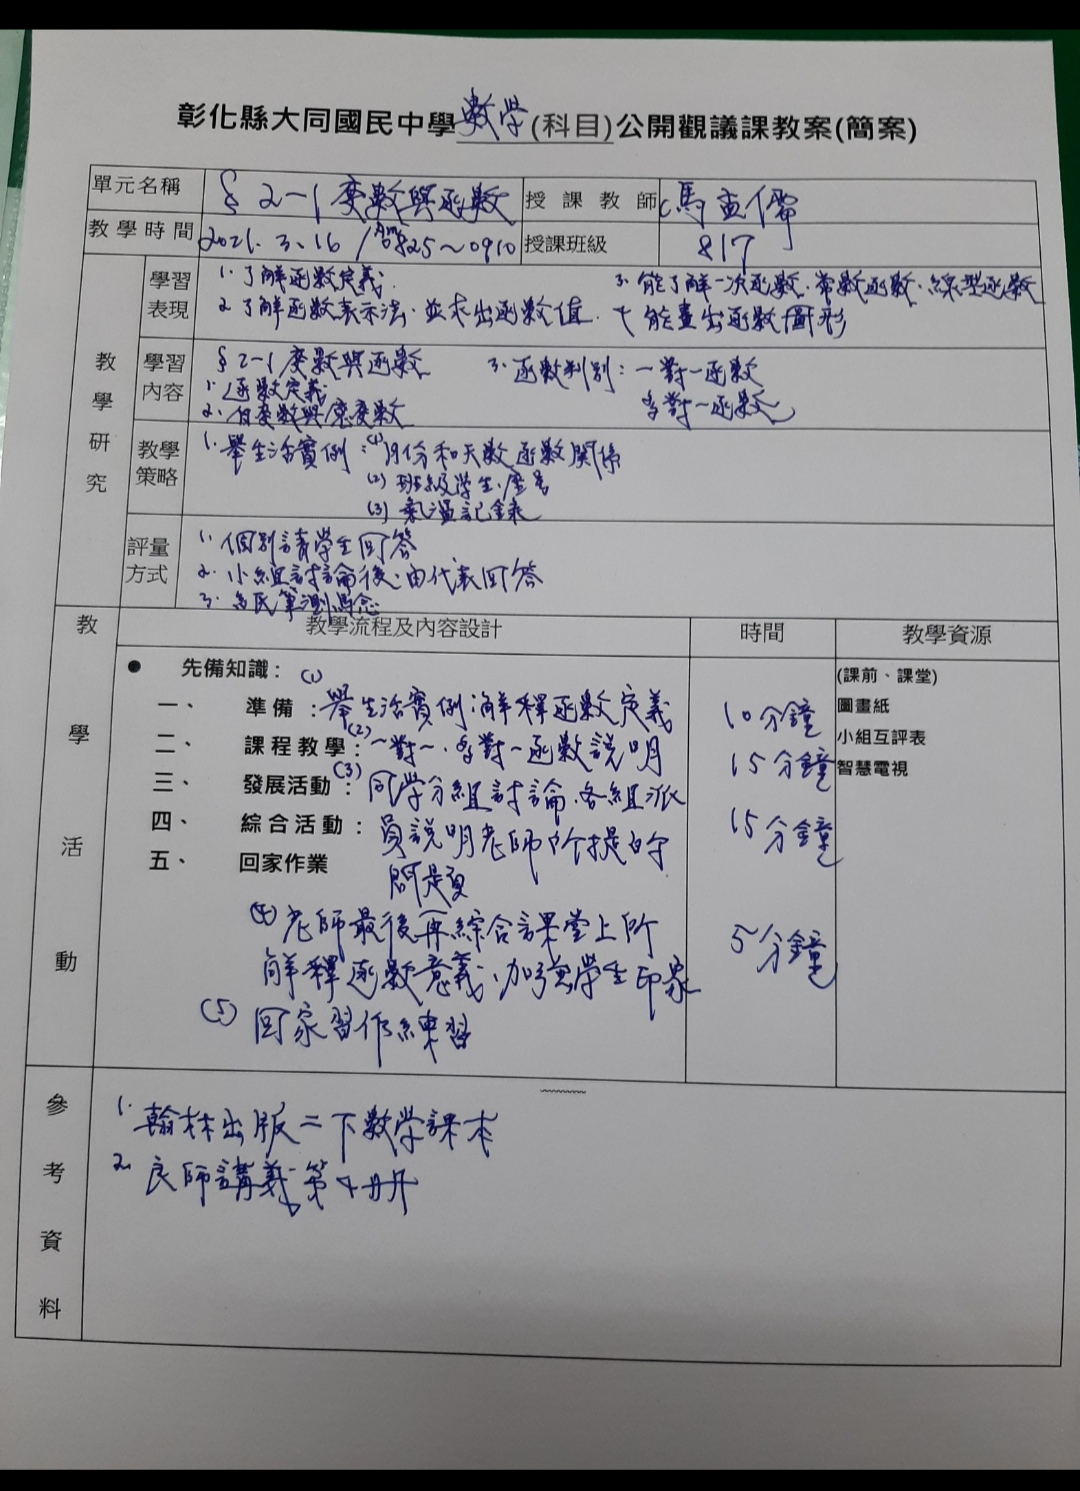 彰化縣大同國民中學數学(科目)公開觀議課教案(簡案)
單元名稱 §2-1 變數與函數 授課教師 馬孟儒
教學時間 2021.3.16 / 0825~0910 授課班級 817
教學研究
學習表現
1. 了解函數定義. 3. 能了解一次函數.常數函數.線型函數
2. 了解函數表示法.並求出函數值. 4. 能畫出函數圖形
學習內容
§2-1 變數與函數 3. 函數判別:一對一函數
1. 函數定義 多對一函數
2. 自變數與應變數
教學策略
1. 舉生活實例:(1) 月份和天數函數關係
(2) 班級学生.座号
(3) 氣溫記錄
評量方式
1. 個別請学生回答
2. 小組討論後.由代表回答
3.
教學活動
教學流程及內容設計 時間 教學資源
● 先備知識:
一、 準備: (1) 舉生活實例:解釋函數定義 10分鐘
二、 課程教學: (2) 一對一.多對一函數說明 15分鐘
三、 發展活動: (3) 同学分組討論.各組派
四、 綜合活動: 員說明老師所提的 15分鐘
五、 回家作業 問題
(4) 老師最後再綜合課堂上所 5分鐘
解釋函數意義.加強学生印象
(5) 回家習作練習
(課前、課堂)
圖畫紙
小組互評表
智慧電視
參考資料
1. 翰林出版二下數学課本
2. 良師講義第4冊